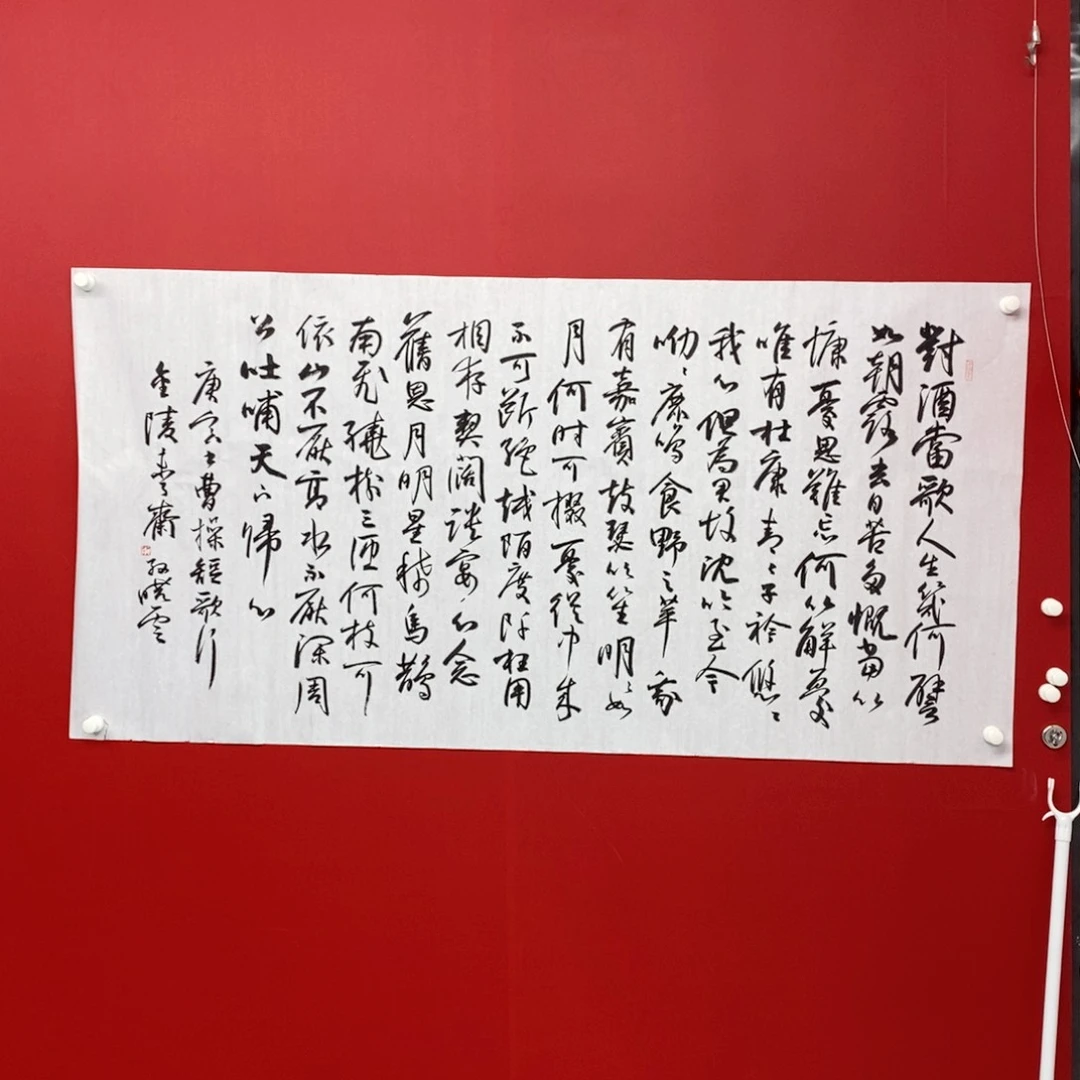 對酒當歌人生幾何譬
如朝露去日苦多慨當以
慷憂思難忘何以解憂
唯有杜康青々子衿悠々
我心但為君故沈吟至今
呦々鹿鳴食野之苹我
有嘉賓鼓瑟吹笙明如
月何时可掇憂從中来
不可斷絕越陌度阡枉用
相存契闊談宴心念
舊恩月明星稀烏鵲
南飛繞樹三匝何枝可
依山不厭高水不厭深周
公吐哺天下歸心
庚子冬曹操短歌行
金陵 齋 孙晓云